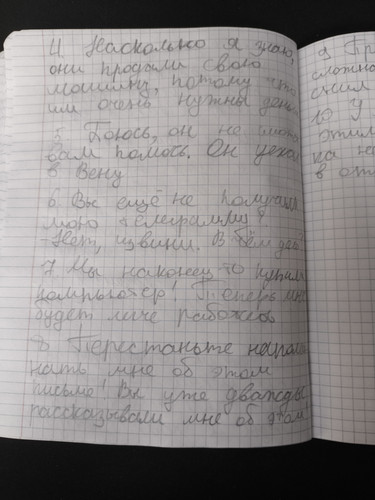 4 Насколько я знаю,
они продали свою
машину, потому что
им очень нужны деньги
5 Боюсь, он не
вам помочь. Он уехал
в Вену
6 Вы ещё не получили
мою телеграмму?
-Нет, извини. В чём дело
7 Мы наконец то купили
компьютер! Теперь мне
будет легче работать
8 Перестаньте напоми
нать мне об этом
письме! Вы уже дважды
рассказывали мне об этом
9
сложно
10 У
в от